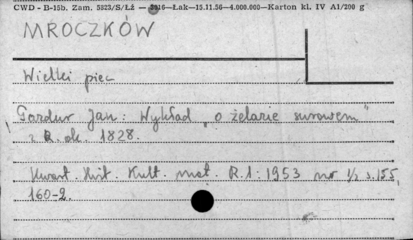 CWD - B-15b. Zam. 5823/S/Łź — 5016—Łak—15.11.56—4.000.000—Karton kl. IV A1/200 g
MROCZKÓW
Wielki piec
Pazdur Jan: Wykład „o żelazie surowem"
z R. ok. 1828.
Kwart. Hist. Kult. mat. R.1: 1953 nr 1/2 s. 155,
160-2.